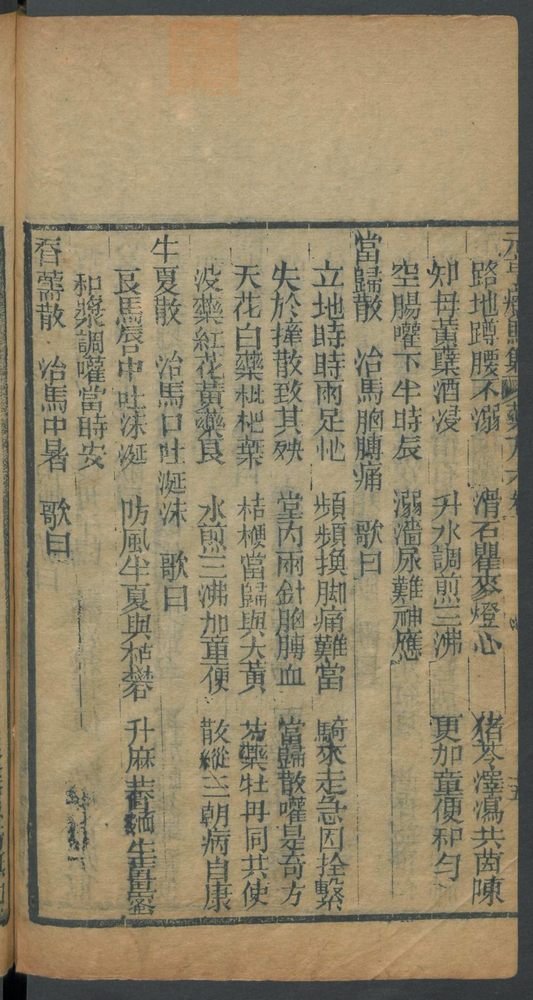 元亨療馬集 藥方六卷 十五
路地蹲腰不溺 滑石瞿麥燈心 猪苓澤瀉共茵陳
知母黃檗酒浸 升水調煎三沸 更加童便和勻
空腸嚾下半時辰 溺濇尿難神應
當歸散 治馬胸膊痛 歌曰
立地時時兩足忙 頻頻換脚痛難當 騎來走急因拴繫
失於擡散致其殃 堂內兩針胸膊血 當歸散嚾是奇方
天花白藥枇杷葉 桔梗當歸與大黃 芍藥牡丹同共使
没藥紅花黃藥良 水煎三沸加童便 散縱三朝病自康
半夏散 治馬口吐涎沫 歌曰
良馬唇中吐沫涎 防風半夏與枯礬 升麻 生薑蜜
和漿調嚾當時安
香薷散 治馬中暑 歌曰